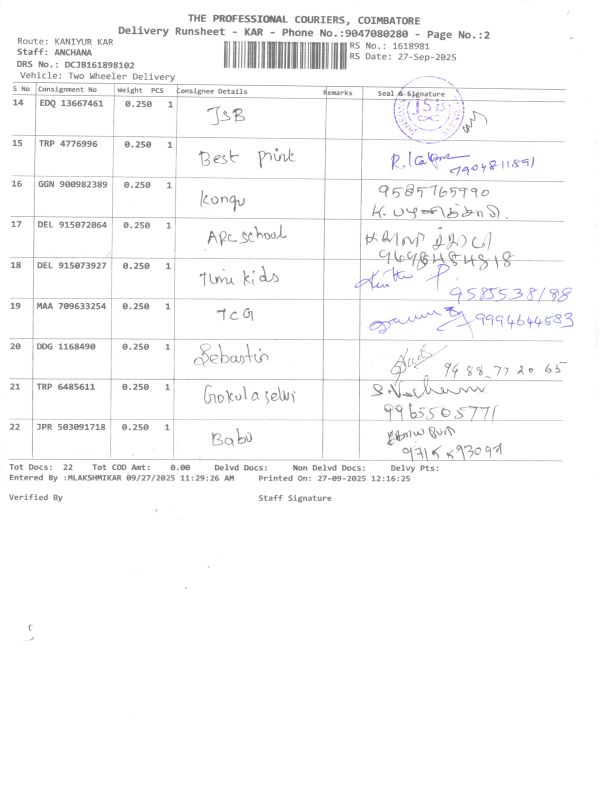 THE PROFESSIONAL COURIERS, COIMBATORE
Delivery Runsheet - KAR - Phone No.:9047080280 - Page No.:2
Route: KANIYUR KAR
RS No.: 1618981
Staff: ANCHANA
RS Date: 27-Sep-2025
DRS No.: DCJB161898102
Vehicle: Two Wheeler Delivery
S No Consignment No Weight PCS Consignee Details Remarks Seal & Signature
14 EDQ 13667461 0.250 1 JSB JSB
15 TRP 4776996 0.250 1 Best print 7904811591
16 GGN 900982389 0.250 1 Kongu 9585765990
17 DEL 915072064 0.250 1 ARC school 9698484818
18 DEL 915073927 0.250 1 Time kids 9585538188
19 MAA 709633254 0.250 1 TCG 9994644583
20 DDG 1168490 0.250 1 Sebastin 9488 77 20 65
21 TRP 6485611 0.250 1 Gokulaselvi 9965505771
22 JPR 503091718 0.250 1 Babu
Tot Docs: 22 Tot COD Amt: 0.00 Delvd Docs: Non Delvd Docs: Delvy Pts:
Entered By :MLAKSHMIKAR 09/27/2025 11:29:26 AM Printed On: 27-09-2025 12:16:25
Verified By Staff Signature